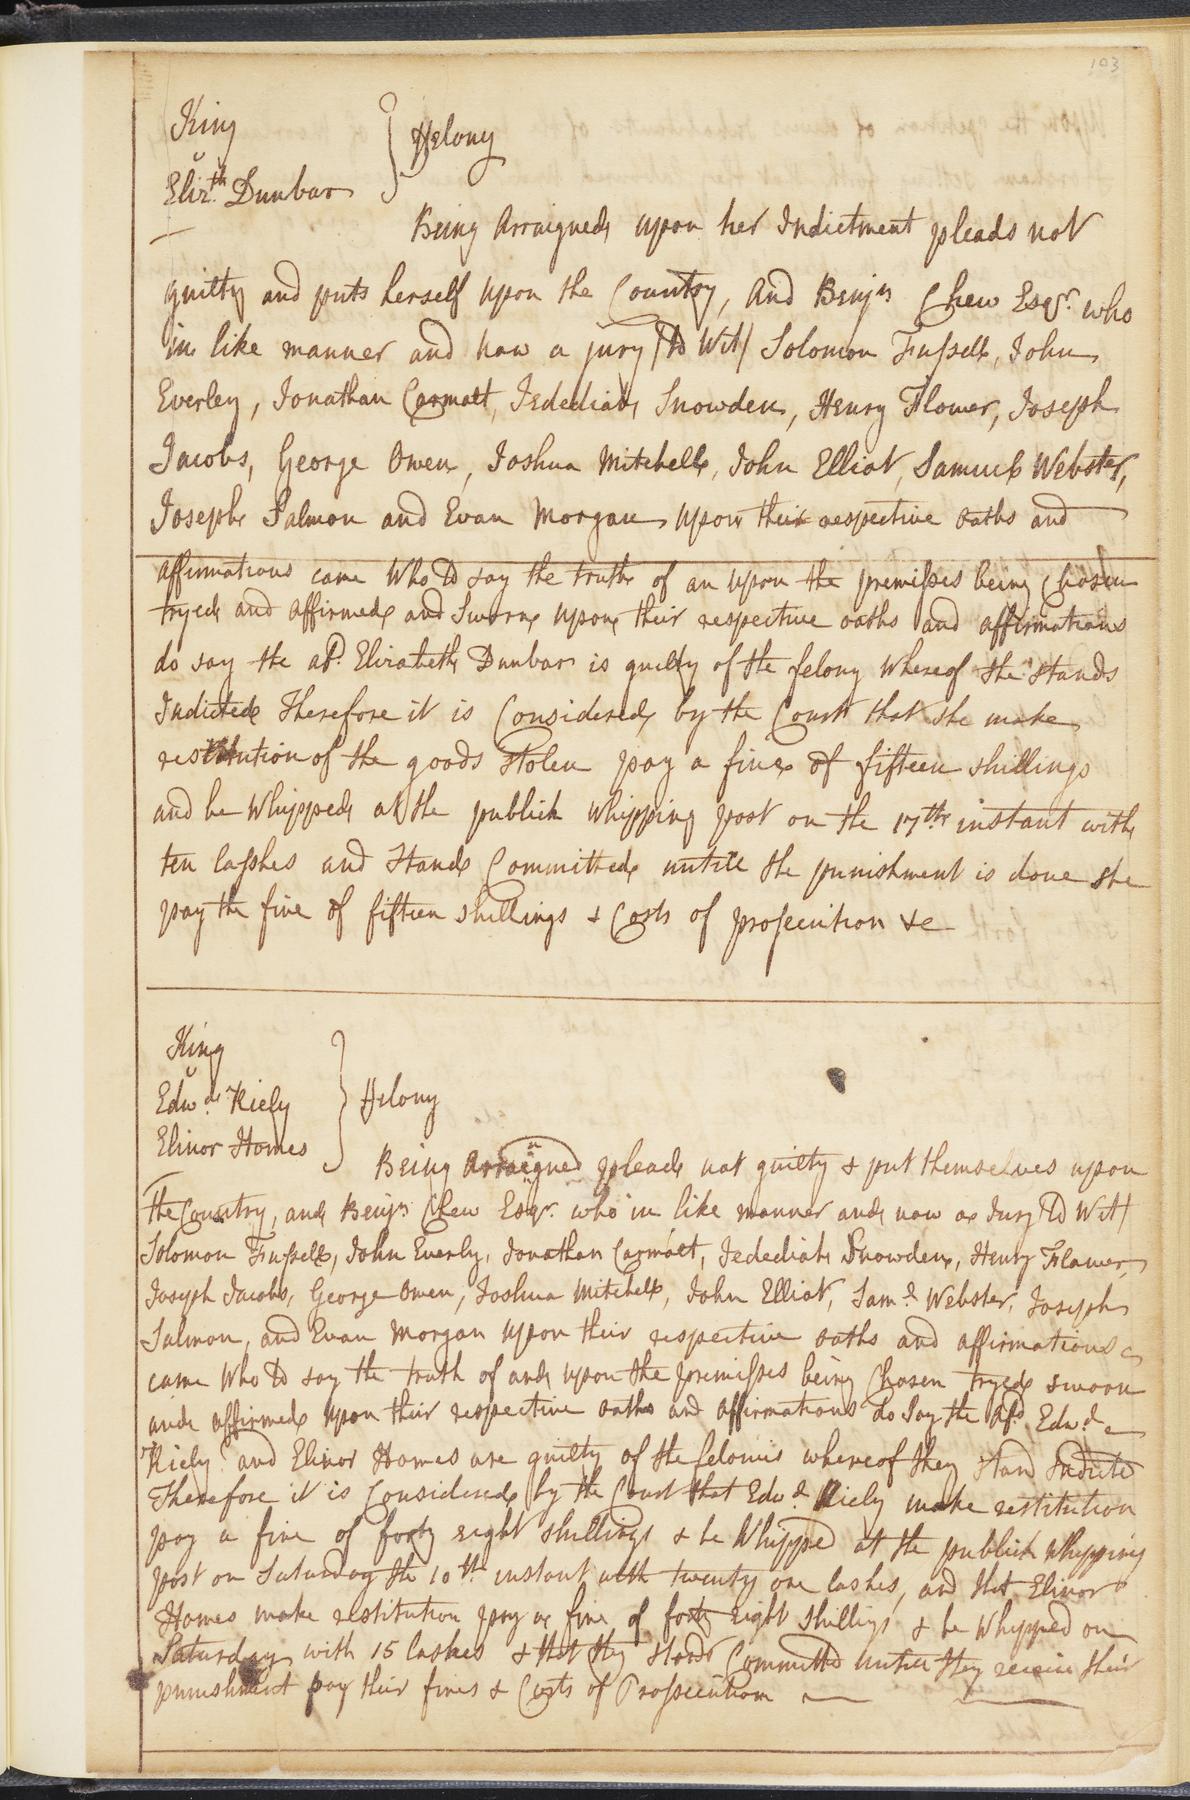 103
King
v
Eliz.th Dunbar } Felony
Being Arraigned upon her Indictment pleads not
guilty and puts herself upon the Country, And Benjn Chew Esqr. who
in like manner and now a jury (to Wit) Solomon Fussell, John
Everley, Jonathan Carmalt, Jedediah Snowden, Henry Flower, Joseph
Jacobs, George Owen, Joshua Mitchell, John Elliot, Samuel Webster,
Joseph Salmon and Evan Morgan upon their respective oaths and
affirmations came Who to say the truth of an upon the premisses being Chosen
tryed and affirmed and Sworn upon their respective oaths and affirmations
do say the afd. Elizabeth Dunbar is guilty of the felony Whereof she stands
Indicted Therefore it is Considered by the Court that she make
restitution of the goods stolen pay a fine of fifteen shillings
and be Whipped at the publick whipping post on the 17th instant with
ten lashes and Stand Committed untill the punishment is done she
pay the fine of fifteen shillings & Costs of prosecution &c
King
v
Edwd. Riely
Elinor Homes } Felony
Being Arraigned plead not guilty & put themselves upon
the Country, and Benjn Chew Esqr. who in like manner and now a Jury (to Wit)
Solomon Fussell, John Everly, Jonathan Carmalt, Jedediah Snowden, Henry Flower,
Joseph Jacobs, George Owen, Joshua Mitchell, John Elliot, Saml. Webster, Joseph
Salmon, and Evan Morgan upon their respective oaths and affirmations
came Who to say the truth of and upon the premisses being Chosen tryed sworn
and affirmed upon their respective oaths and affirmations do Say the afd. Edwd.
Riely and Elinor Homes are guilty of the felonies whereof they stand Indicted
Therefore it is Considered by the Court that Edwd. Riely make restitution
pay a fine of forty eight shillings & be Whipped at the publick Whipping
post on Saturday the 10th instant with twenty one lashes, and that Elinor
Homes make restitution pay a fine of forty eight shillings & be Whipped on
Saturday with 15 lashes & that they stand Committed untill they receive their
punishment pay their fines & Costs of Prosecution